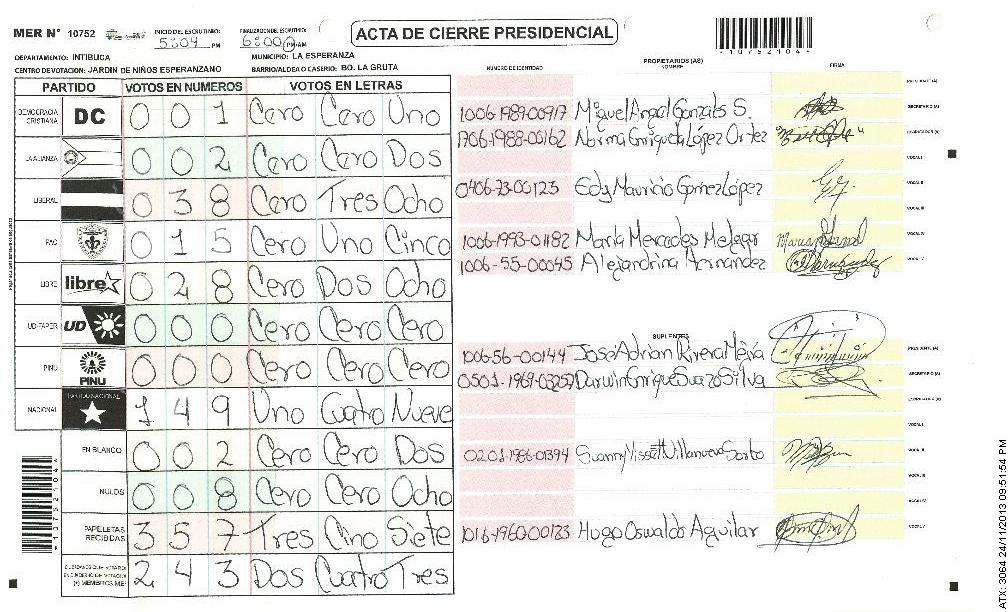 MER N° 10752 INICIO DEL ESCRUTINIO: 5:04 PM FINALIZACION DEL ESCRUTINIO: 6:00 PM/AM
ACTA DE CIERRE PRESIDENCIAL
-10752104-
DEPARTAMENTO: INTIBUCA MUNICIPIO: LA ESPERANZA
CENTRO DE VOTACION: JARDIN DE NIÑOS ESPERANZANO BARRIO/ALDEA O CASERIO: BO. LA GRUTA
PARTIDO VOTOS EN NUMEROS VOTOS EN LETRAS
DEMOCRACIA CRISTIANA DC 0 0 1 Cero Cero Uno
LA ALIANZA 0 0 2 Cero Cero Dos
LIBERAL 0 3 8 Cero Tres Ocho
PAC 0 1 5 Cero Uno Cinco
LIBRE libre 0 2 8 Cero Dos Ocho
UD-FAPER UD 0 0 0 Cero Cero Cero
PINU PINU 0 0 0 Cero Cero Cero
NACIONAL PARTIDO NACIONAL 1 4 9 Uno Cuatro Nueve
EN BLANCO 0 0 2 Cero Cero Dos
NULOS 0 0 8 Cero Cero Ocho
PAPELETAS RECIBIDAS 3 5 7 Tres Cino Siete
2 4 3 Dos Cuatro Tres
PROPIETARIOS (AS)
NUMERO DE IDENTIDAD NOMBRE FIRMA
PRESIDENTE (A)
1006-1989-00917 Miguel Angel Gonzales S. SECRETARIO (A)
1706-1988-00162 Norma Enriqueta López Ortez ESCRUTADOR (A)
VOCAL I
0406-73-00123 Edy Mauricio Gomez López VOCAL II
VOCAL III
1006-1993-01182 María Mercedes Melgar VOCAL IV
1006-55-00045 Alejandrina Hernandez VOCAL V
SUPLENTES
1006-56-00144 José Adrian Rivera Mejía PRESIDENTE (A)
0501-1969-03257 Darwin Enrique Suazo Silva SECRETARIO (A)
ESCRUTADOR (A)
VOCAL I
0201-1986-01394 VOCAL II
VOCAL III
VOCAL IV
1016-1960-00133 Hugo Oswaldo Aguilar VOCAL V
ATX: 3064 24/11/2013 09:51:54 PM